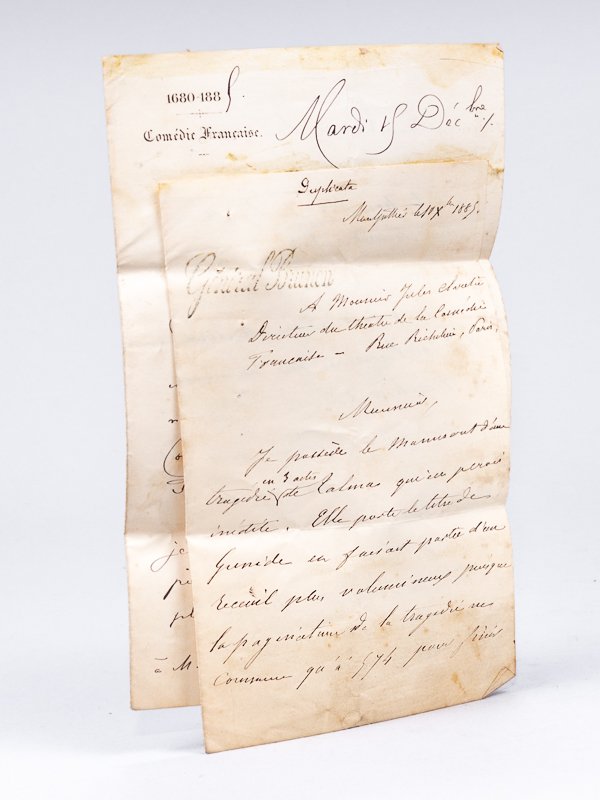 1680-1885
Comédie Française.
Mardi 15 Déc bre
Duplicata
Montpellier le 10 Xbre 1885.
Général Brunon
A Monsieur Jules Claretie
Directeur du théâtre de la Comédie
Française – Rue Richelieu, Paris,
Monsieur,
Je possède le manuscrit d'une
en 3 actes
tragédie de Talma qu'on pense
inédite. Elle porte le titre de
en faisait partie d'un
recueil plus volumineux puisque
la pagination de la tragédie ne
commence qu'à 574 pour finir
je
à M.